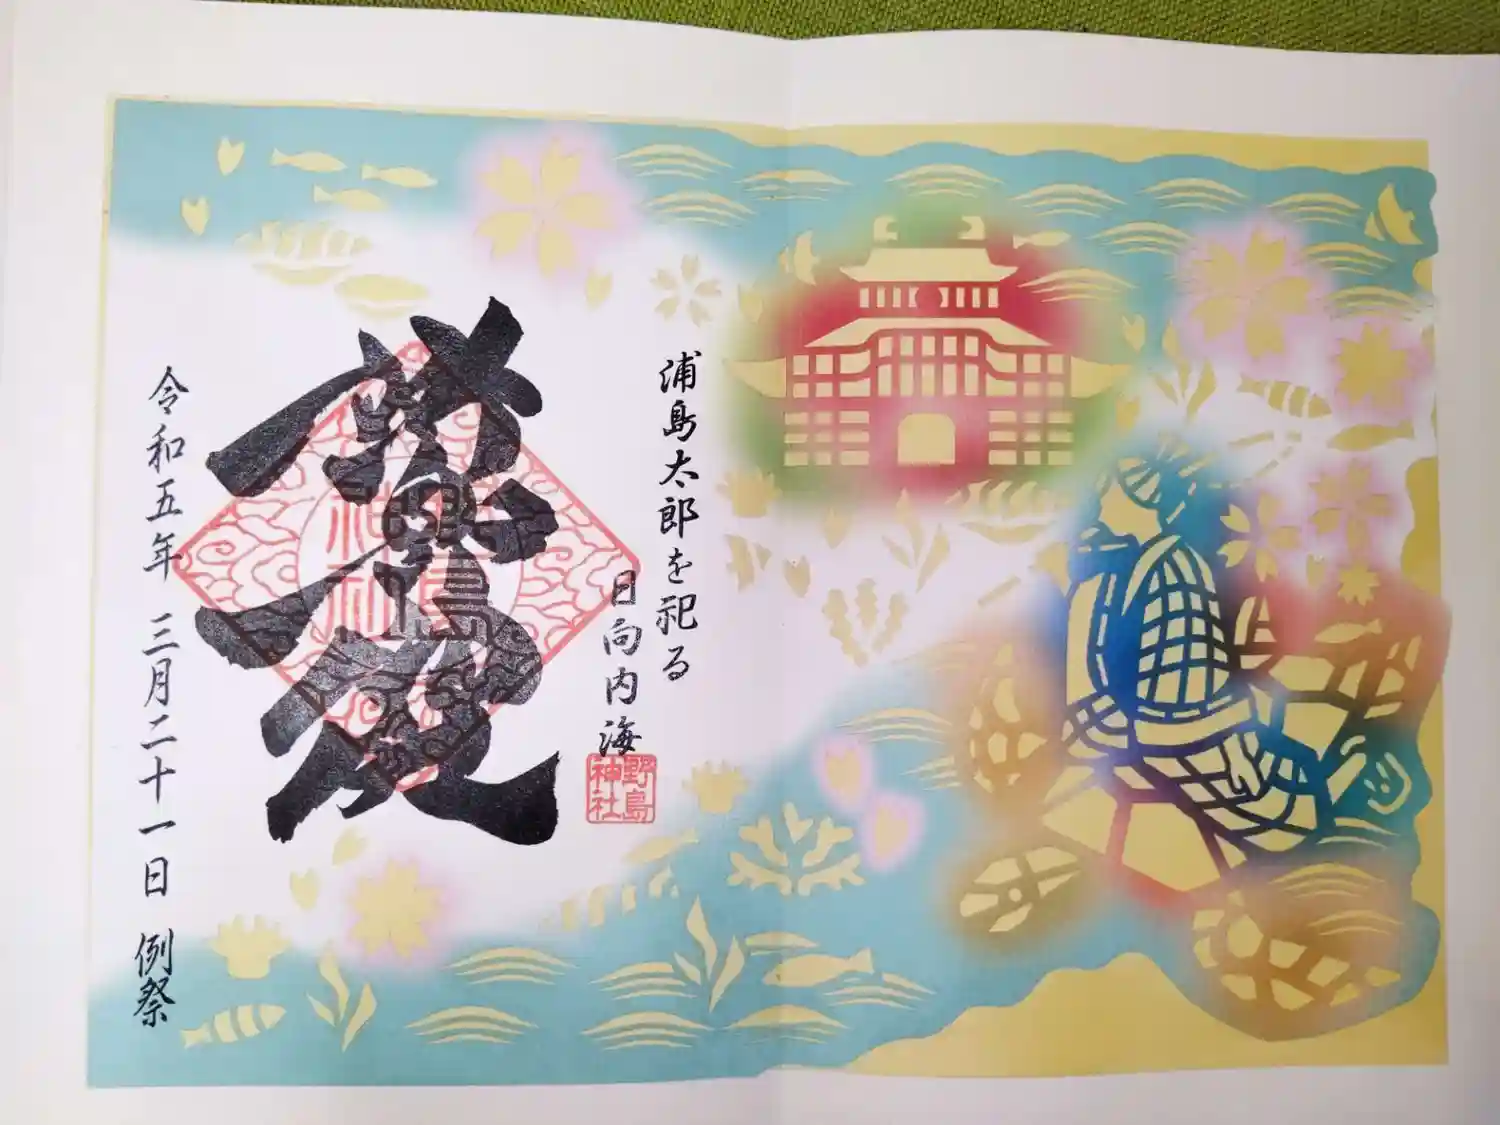 浦島太郎を祀る
日向内海
野島
神社
令和五年 三月二十一日 例祭